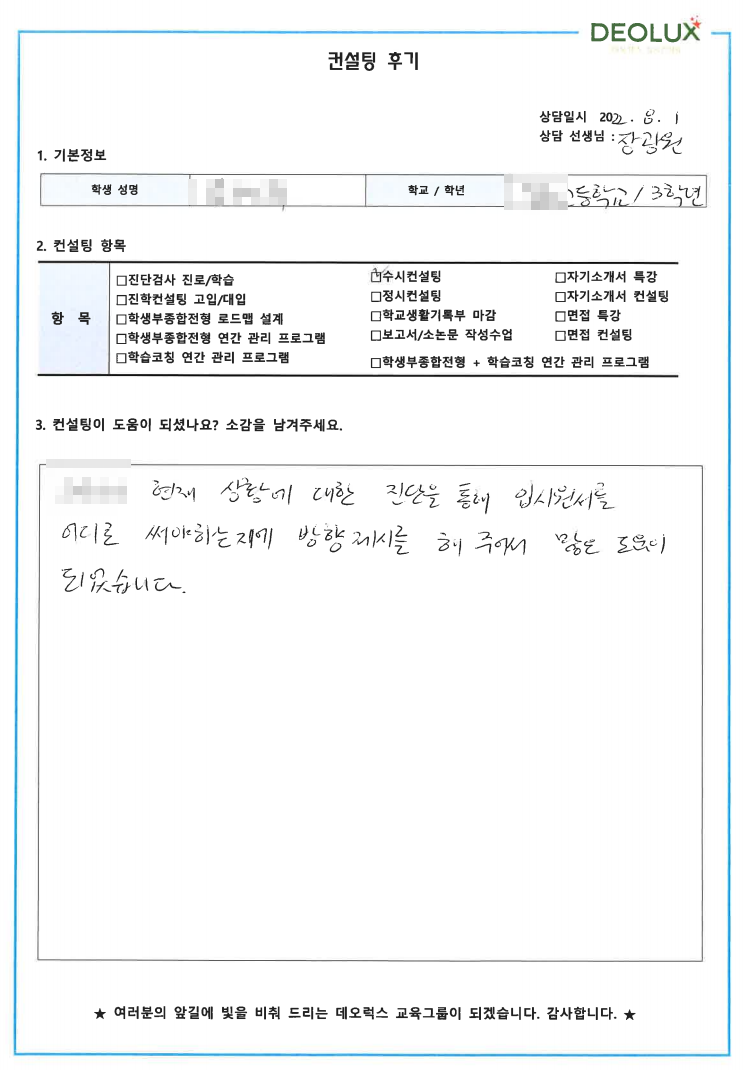 DEOLUX
컨설팅 후기
상담일시 2022. 8. 1
상담 선생님 : 장광원
1. 기본정보
학생 성명 학교 / 학년 고등학교 / 3학년
2. 컨설팅 항목
항 목
□진단검사 진로/학습
□진학컨설팅 고입/대입
□학생부종합전형 로드맵 설계
□학생부종합전형 연간 관리 프로그램
□학습코칭 연간 관리 프로그램
☑수시컨설팅
□정시컨설팅
□학교생활기록부 마감
□보고서/소논문 작성수업
□자기소개서 특강
□자기소개서 컨설팅
□면접 특강
□면접 컨설팅
□학생부종합전형 + 학습코칭 연간 관리 프로그램
3. 컨설팅이 도움이 되셨나요? 소감을 남겨주세요.
현재 상황에 대한 진단을 통해 입시원서를
어디로 써야하는지에 방향제시를 해 주어서 많은 도움이
되었습니다.
★ 여러분의 앞길에 빛을 비춰 드리는 데오럭스 교육그룹이 되겠습니다. 감사합니다. ★